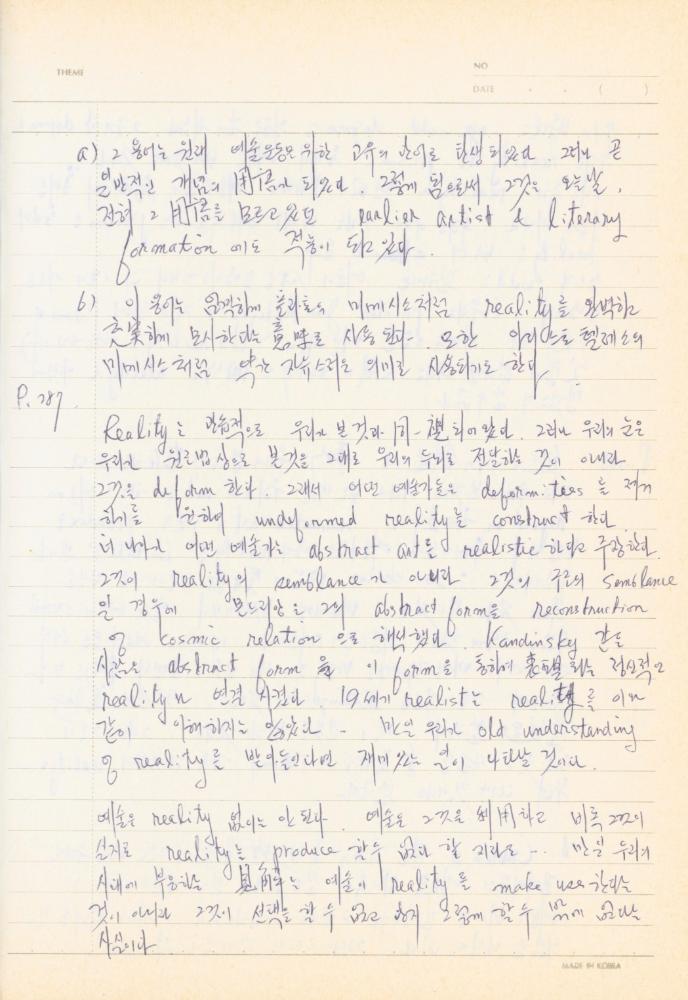 THEME
NO
DATE . . ( )
a) 그 용어는 원래 예술운동을 위한 고유의 단어로 탄생 되었다. 그러나 곧
일반적인 개념의 用語가 되었다. 그렇게 됨으로써 그것은 오늘날,
전혀 그 用語를 모르고 있던 earlier artist & literary
formation 에도 적용이 되고 있다.
b) 이 용어는 엄격하게 플라톤의 미메시스처럼 reality를 완벽하고
충실하게 모사한다는 意味로 사용 된다. 또한 아리스토텔레스의
미메시스처럼 약간 자유스러운 의미로 사용되기도 한다.
P. 287.
Reality는 관습적으로 우리가 본 것과 同一視 되어 왔다. 그러나 우리의 눈은
우리가 원근법상으로 본것을 그대로 우리의 두뇌로 전달하는 것이 아니라
그것을 deform 한다. 그래서 어떤 예술가들은 deformities 를 제거
하기를 원하여 undeformed reality를 construct 한다.
더 나아가 어떤 예술가는 abstract art를 realistic 하다고 주장한다.
그것이 reality의 semblance가 아니라 그것의 구조의 semblance
일 경우에 몬드리앙은 그의 abstract form을 reconstruction
of cosmic relation 으로 해석했다. Kandinsky 같은
사람은 abstract form 을 이 form을 통하여 表現되는 정신적인
reality에 연결 시켰다. 19세기 realist는 reality를 이와
같이 이해하지는 않았다. 만일 우리가 old understanding
of reality를 받아들인다면 재미있는 일이 나타날 것이다.
예술은 reality 없이는 안 된다. 예술은 그것을 利用하고 비록 그것이
실지로 reality를 produce 할수 없다 할 지라도... 만일 우리의
시대에 부응하는 見解는 예술이 reality를 make use한다는
것이 아니라 그것이 선택을 할 수 없고 단지 그렇게 할 수 밖에 없다는
사실이다.
MADE IN KOREA